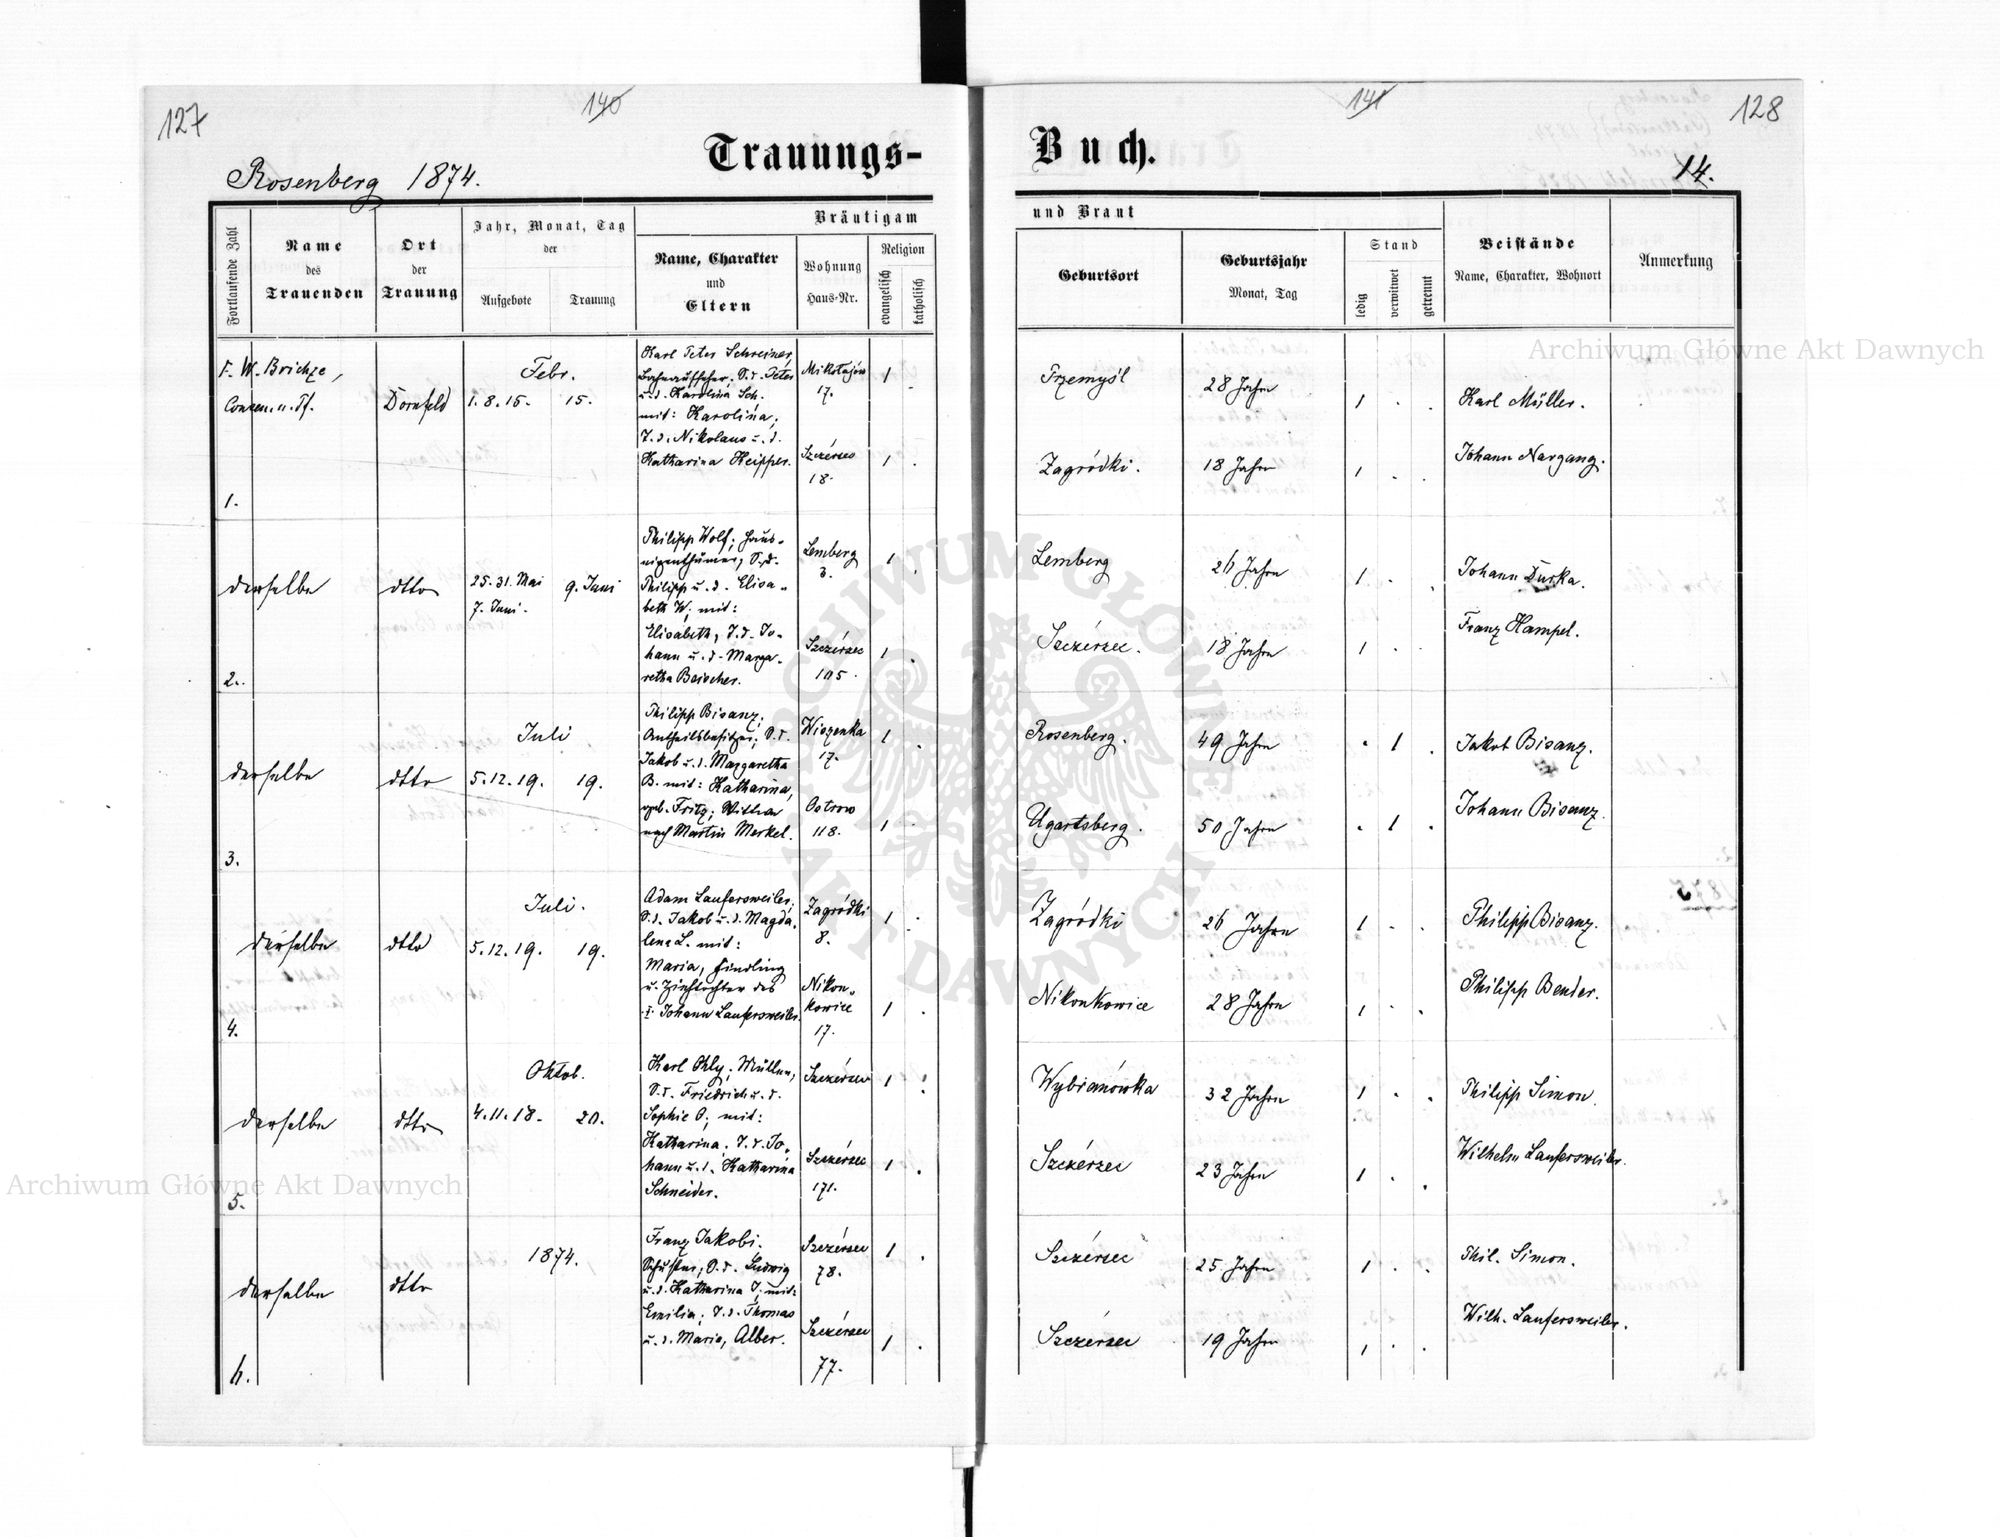 127
140
141
128
Trauungs-
Buch.
Rosenberg 1874.
14.
Fortlaufende Zahl
Name
des
Trauenden
Ort
der
Trauung
Jahr, Monat, Tag
der
Aufgebote
Trauung
Bräutigam
Name, Charakter
und
Eltern
Wohnung
Haus-Nr.
Religion
evangelisch
katholisch
und Braut
Geburtsort
Geburtsjahr
Monat, Tag
Stand
ledig
verwitwet
getrennt
Beistände
Name, Charakter, Wohnort
Anmerkung
1.
F. W. Brichze,
Dornfeld
Febr.
1. 8. 15. 15.
Karl Peter Schreiner,
Bahnaufseher; S. d. Peter
u. d. Karolina Sch.
mit: Karolina,
T. d. Nikolaus u. d.
Katharina Keipper.
Mikołajów
17.
1
Szczérzec
18.
1
Przemyśl
28 Jahre
1
Karl Müller.
Zagródki.
18 Jahre
1
Johann Nargang.
2.
derselbe
dtto
25. 31. Mai
7. Juni.
9. Juni
Philipp Wolf; Haus-
eigenthümer; S. d.
Philipp u. d. Elisa-
beth W; mit:
Elisabeth, T. d. Jo-
hann u. d. Marga-
retha Beischer.
Lemberg
3.
1
Szczérzec
105.
1
Lemberg
26 Jahre
1
Johann Durka.
Szczérzec.
18 Jahre
1
Franz Hampel.
3.
derselbe
dtto
Juli
5. 12. 19. 19.
Philipp Bisanz;
Antheilsbesitzer; S. d.
Jakob u. d. Margaretha
B. mit: Katharina,
geb. Fritz; Witwe
nach Martin Merkel.
Wiszenka
17.
1
Ostrow
118.
1
Rosenberg.
49 Jahre
1
Jakob Bisanz.
Ugartsberg.
50 Jahre
1
Johann Bisanz.
4.
derselbe
dtto
Juli.
5. 12. 19. 19.
Adam Laufersweiler;
S. d. Jakob u. d. Magda-
lena L. mit:
Maria, Findling
u. Ziehtochter des
Johann Laufersweiler.
Zagródki
8.
1
Nikon-
kowice
17.
1
Zagródki
26 Jahre
1
Philipp Bisanz.
Nikonkowice
28 Jahre
1
Philipp Bender.
5.
derselbe
dtto
Oktob.
4. 11. 18. 20.
Karl Ohly; Müller,
S. d. Friedrich u. d.
Sophie O; mit:
Katharina. T. d. Jo-
hann u. d. Katharina
Schneider.
Szczérzec
1
Szczérzec
171.
1
Wybranówka
32 Jahre
1
Philipp Simon.
Szczérzec
23 Jahre
1
Wilhelm Laufersweiler.
6.
derselbe
dtto
1874.
Franz Jakobi.
Schuster, S. d. Ludwig
u. d. Katharina J; mit:
Emilia; T. d. Thomas
u. d. Maria, Alber.
Szczérzec
78.
1
Szczérzec
77.
1
Szczérzec
25 Jahre
1
Phil. Simon.
Szczérzec
19 Jahre
1
Wilh. Laufersweiler.
Archiwum Główne Akt Dawnych
Archiwum Główne Akt Dawnych
ARCHIWUM GŁÓWNE
AKT DAWNYCH